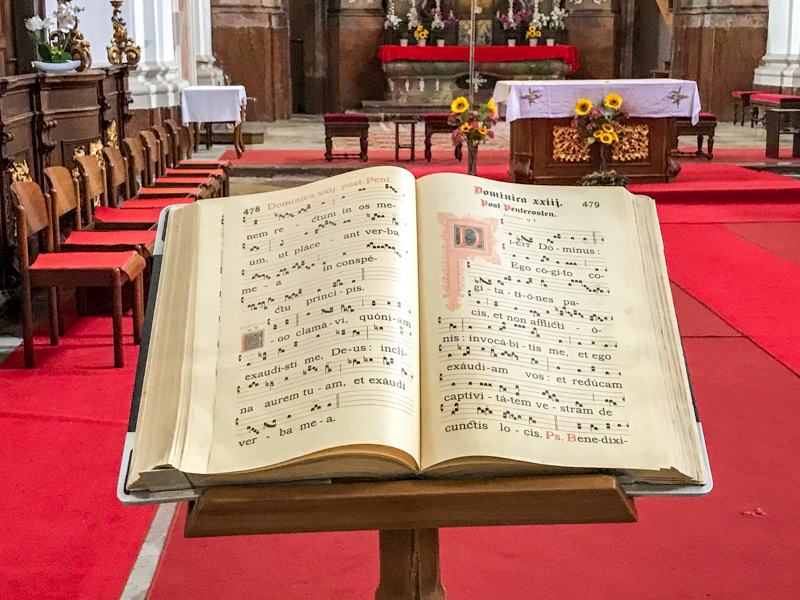 478 Dominica xxij. post Pent.
nem re - ctum in os me-
um, ut pláce - ant verba
me - a in conspé-
ctu príncipis.
-go clamá-vi, quóni-am
exaudi-sti me, De-us: inclí-
na aurem tu-am, et exáudi
ver - ba me-a.
Dominica xxiij. 479
Post Pentecosten.
D-I-CIT Dó-minus:
Ego có-gi-to co-
gi-ta-ti-ó-nes pa-
cis, et non afflicti-ó-
nis: invocá-bi-tis me, et ego
exáudi-am vos: et redúcam
captivi-tá-tem ve-stram de
cunctis lo-cis. Ps. Bene-dixí-